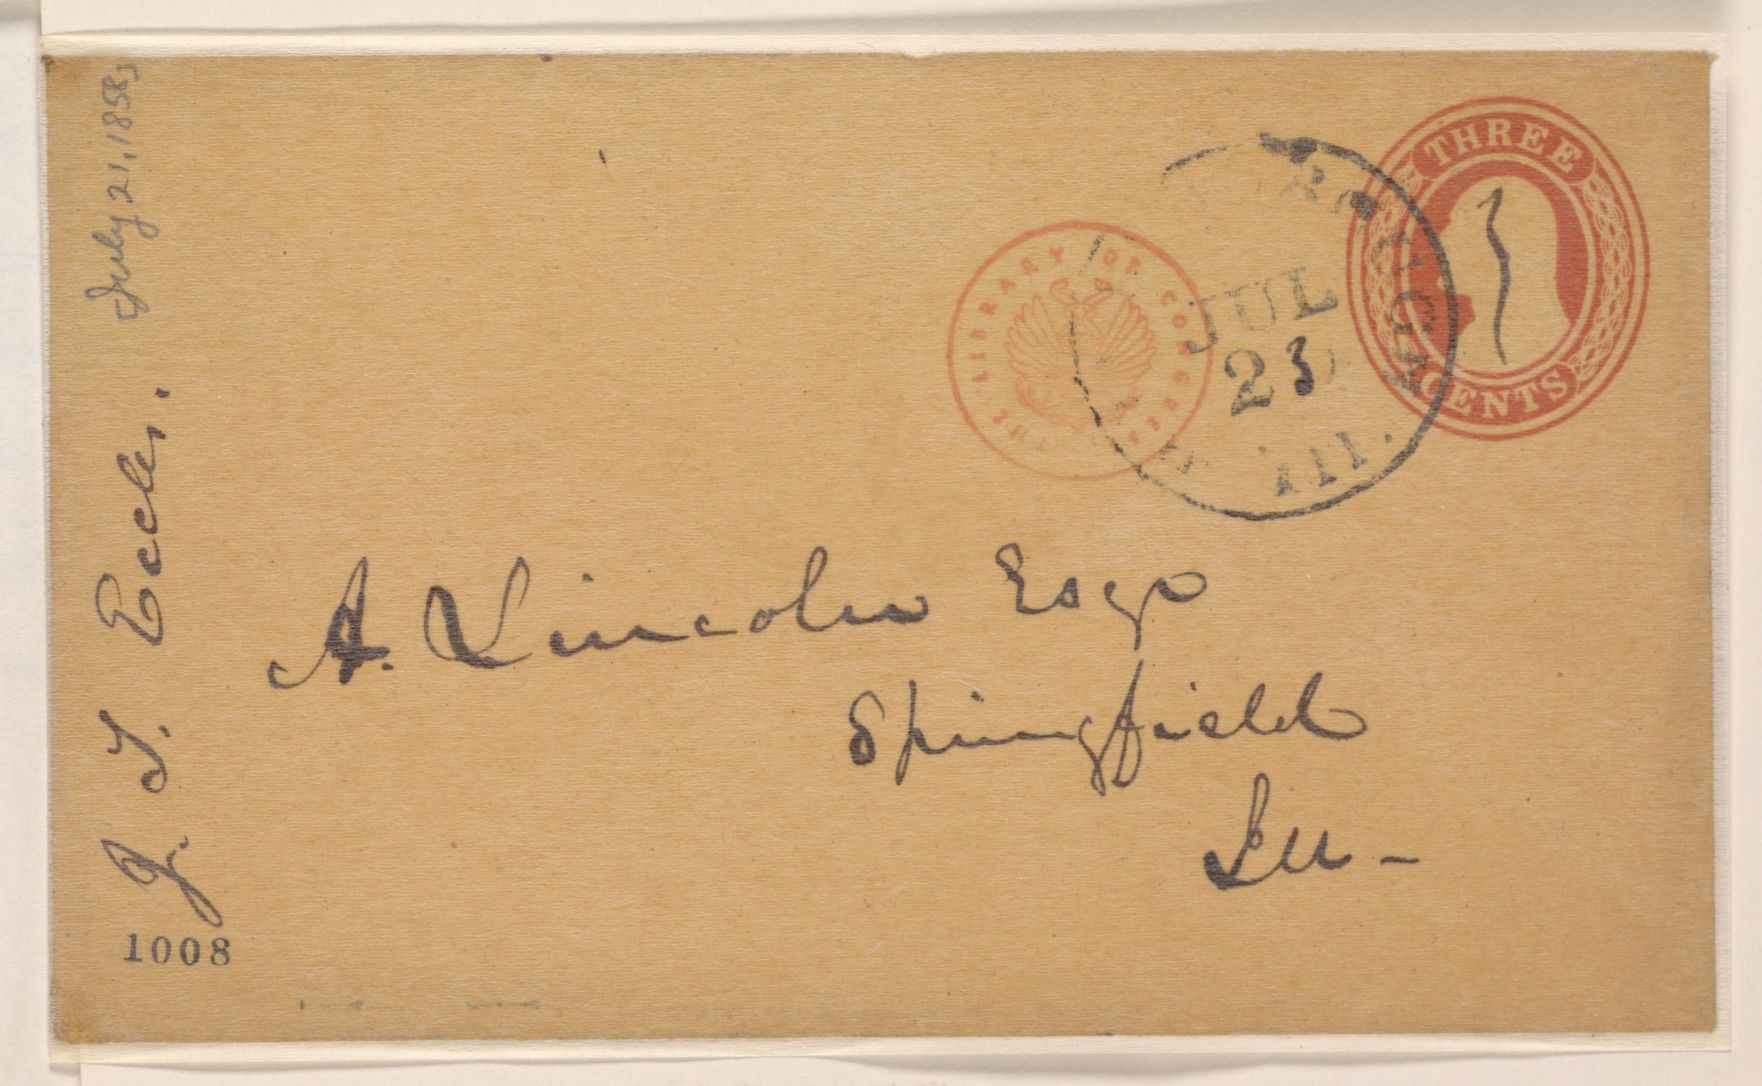 July 21, 1858
J. T. Eccles.
THREE
CENTS
THE LIBRARY OF CONGRESS
JUL
23
Ill.
A. Lincoln Esqr
Springfield
Ill -
1008